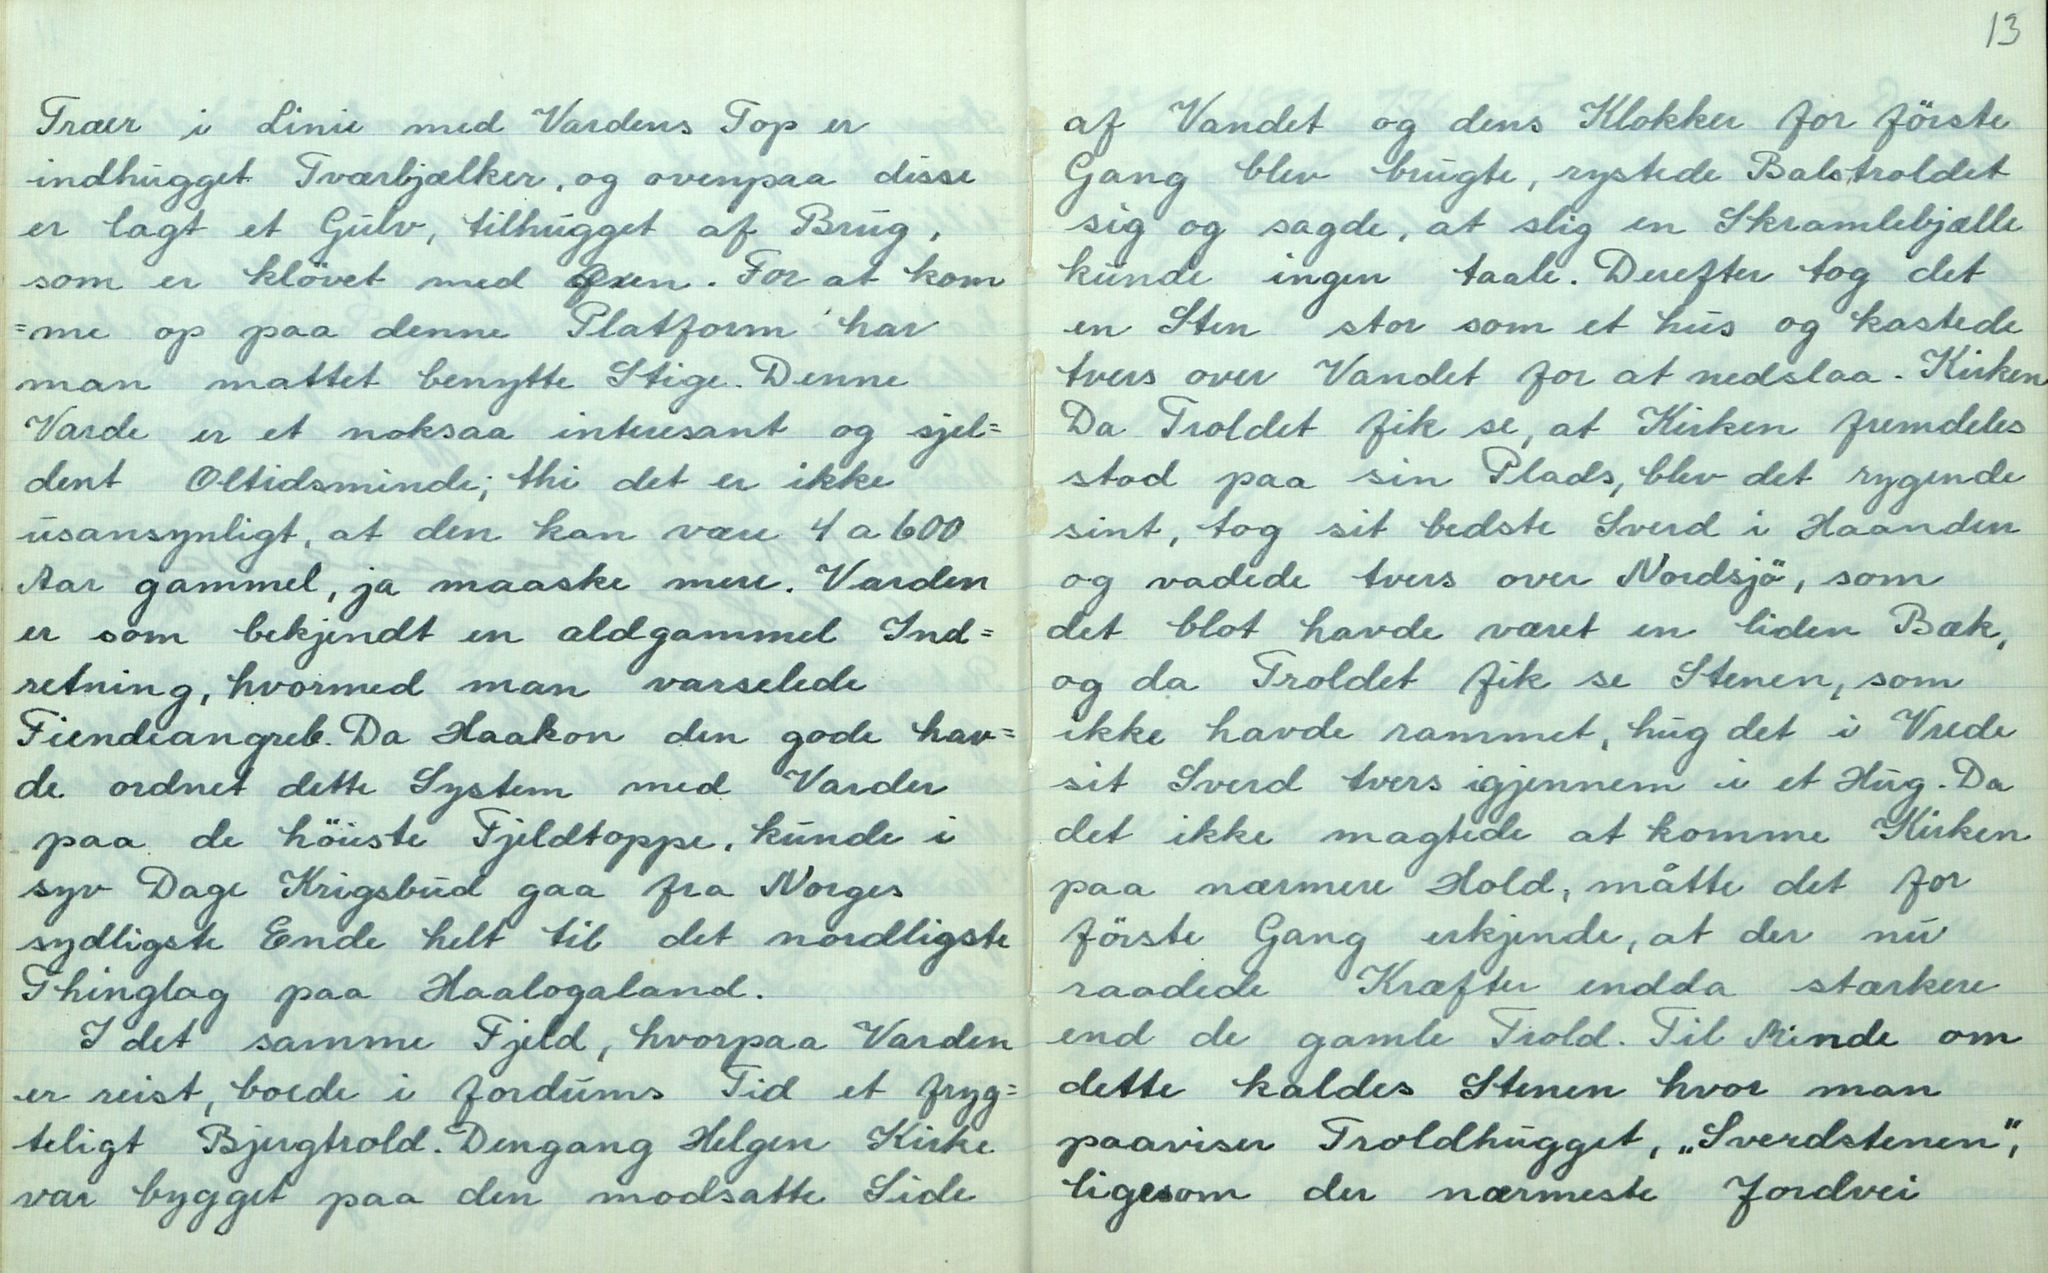 Træer i Linie med Vardens Top er
indhugget Tværbjælker, og ovenpaa disse
er lagt et Gulv, tilhugget af Brug,
som er klövet med Öxen. For at kom
=me op paa denne Platform har
man mattet benytte Stige. Denne
Varde er et noksaa interesant og sjel=
dent Oltidsminde; thi det er ikke
usansynligt, at den kan være 4 a 600
Aar gammel, ja maaske mere. Varden
er som bekjendt en aldgammel Ind=
retning, hvormed man varselede
Fiendeangreb. Da Haakon den gode hav=
de ordnet dette System med Varder
paa de höieste Fjeldtoppe, kunde i
syv Dage Krigsbud gaa fra Norges
sydligste Ende helt til det nordligste
Thinglag paa Haalogaland.
I det samme Fjeld, hvorpaa Varden
er reist, boede i fordums Tid et fryg=
teligt Bjergtrold. Dengang Helgen Kirke
var bygget paa den modsatte Side
13
af Vandet og dens Klokker for förste
Gang blev brugte, rystede Balstroldet
sig og sagde, at slig en Skramlebjælle
kunde ingen taale. Derefter tog det
en Sten stor som et hus og kastede
tvers over Vandet for at nedslaa. Kirken
Da Troldet fik se, at Kirken fremdeles
stod paa sin Plads, blev det rygende
sint, tog sit bedste Sverd i Haanden
og vadede tvers over Nordsjö, som
det blot havde været en liden Bæk,
og da Troldet fik se Stenen, som
ikke havde rammet, hug det i Vrede
sit Sverd tvers igjennem i et Hug. Da
det ikke magtede at komme Kirken
paa nærmere Hold, måtte det for
förste Gang erkjende, at der nu
raadede Kræfter endda stærkere
end de gamle Trold. Til Minde om
dette kaldes Stenen hvor man
paaviser Troldhugget, „Sverdstenen",
ligesom der nærmeste Jordvei